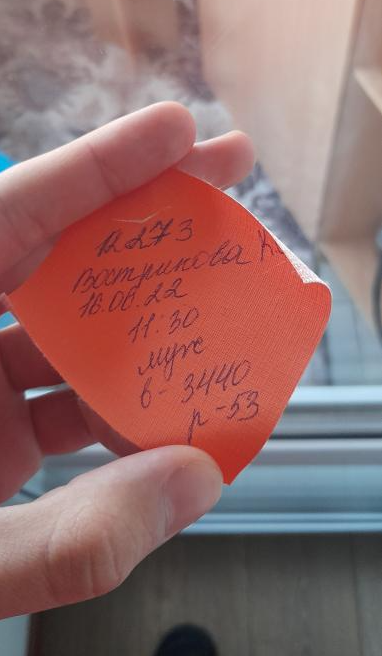 12273
Вострикова К.
16.06.22
11:30
муж
в - 3440
р - 53